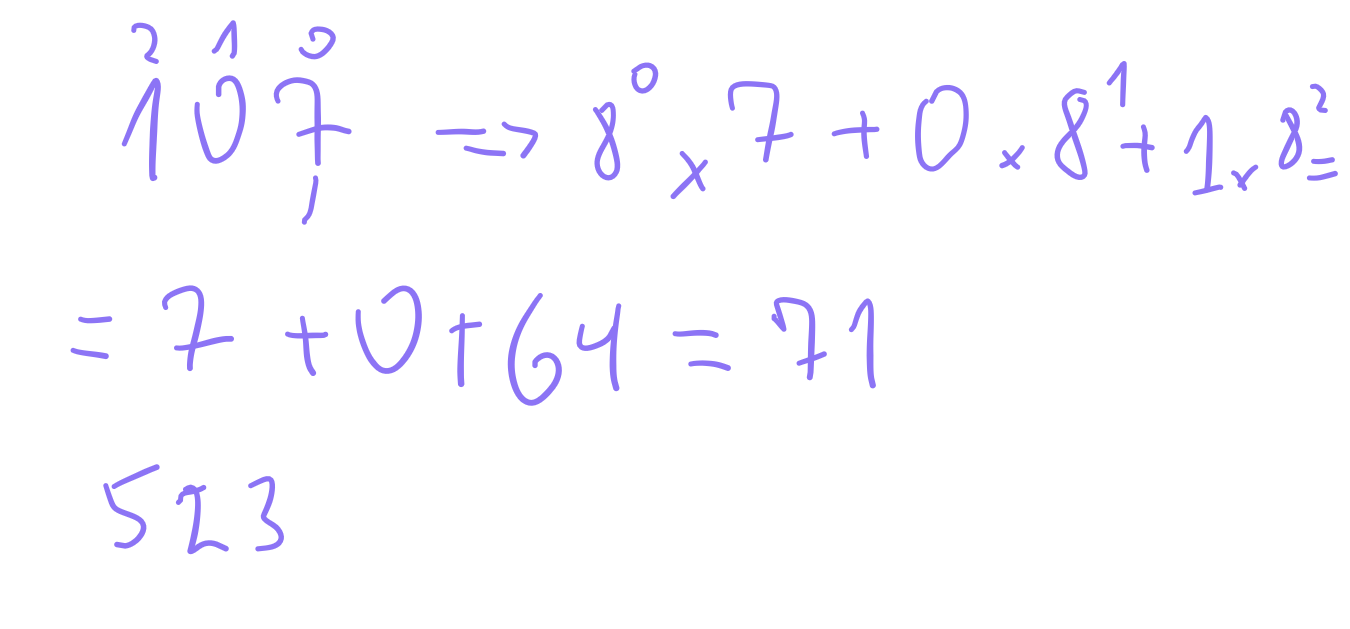 2 1 0
107, => 8⁰ x 7 + 0 x 8¹ + 1 x 8² =
= 7 + 0 + 64 = 71
523